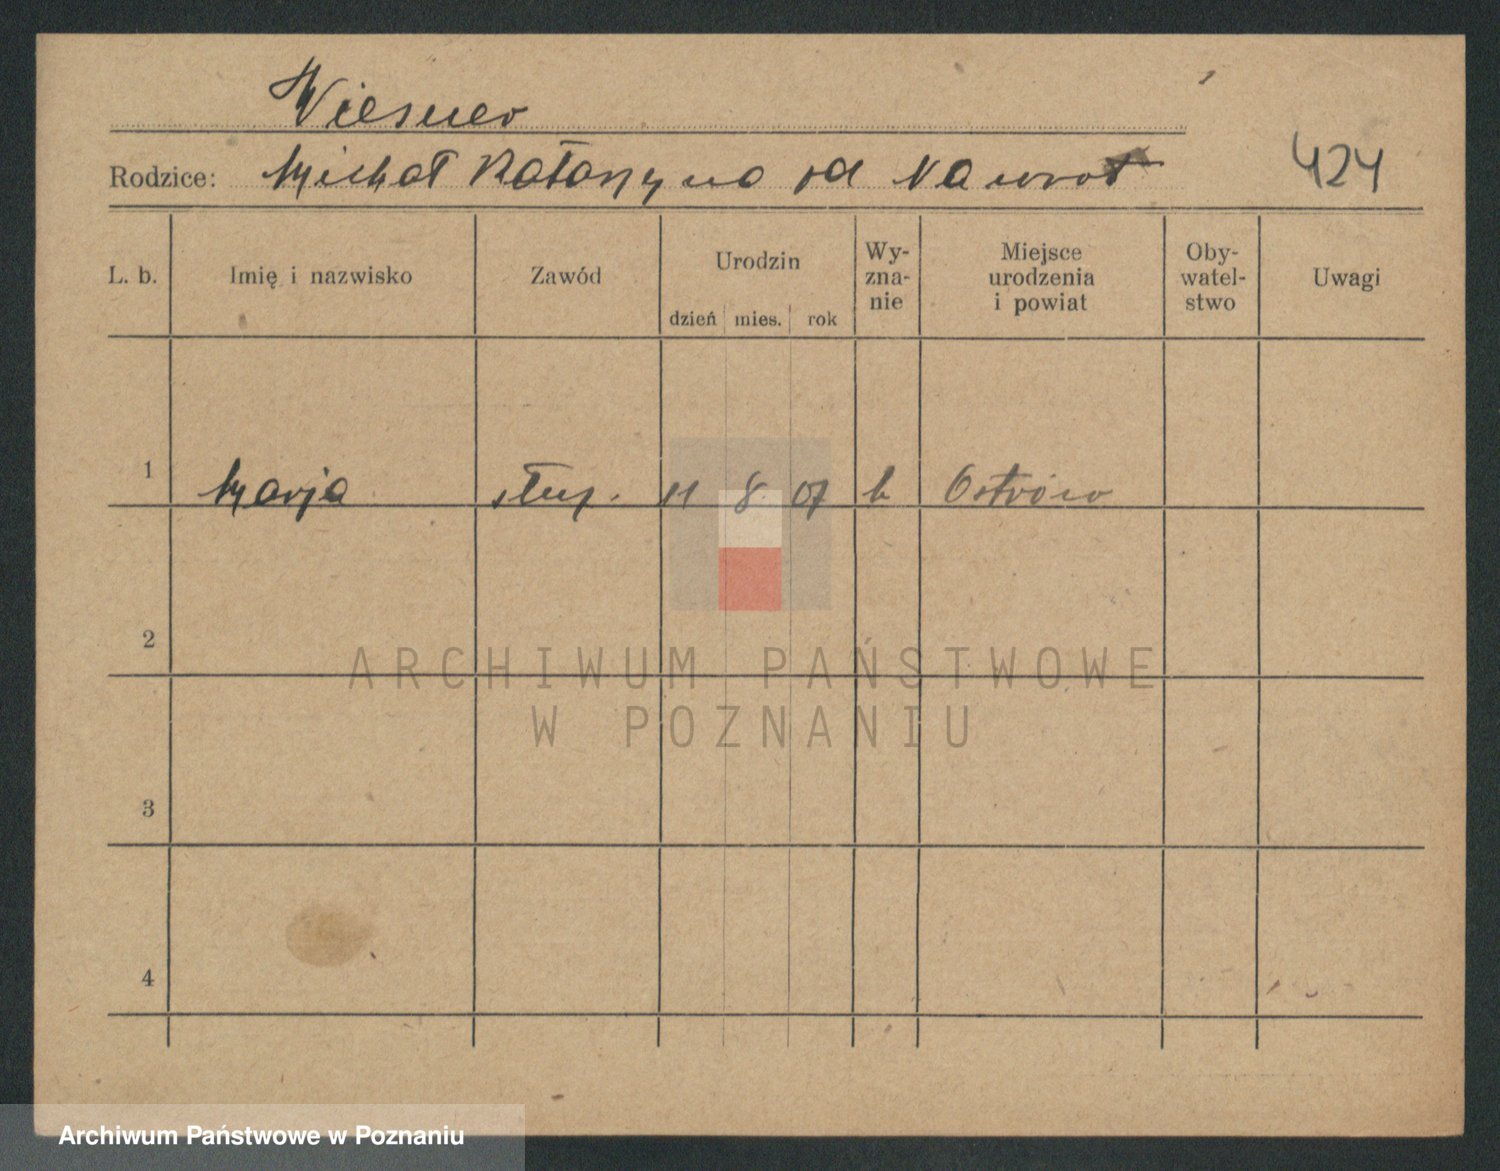 Wiesner
Rodzice: Michał Katarzyna od Nawrot
424
L. b. Imię i nazwisko Zawód Urodzin dzień mies. rok Wy-zna-nie Miejsce urodzenia i powiat Oby-watel-stwo Uwagi
1 Marja służ. 11 8. 07 k Ostrów
2
3
4
ARCHIWUM PAŃSTWOWE
W POZNANIU
Archiwum Państwowe w Poznaniu